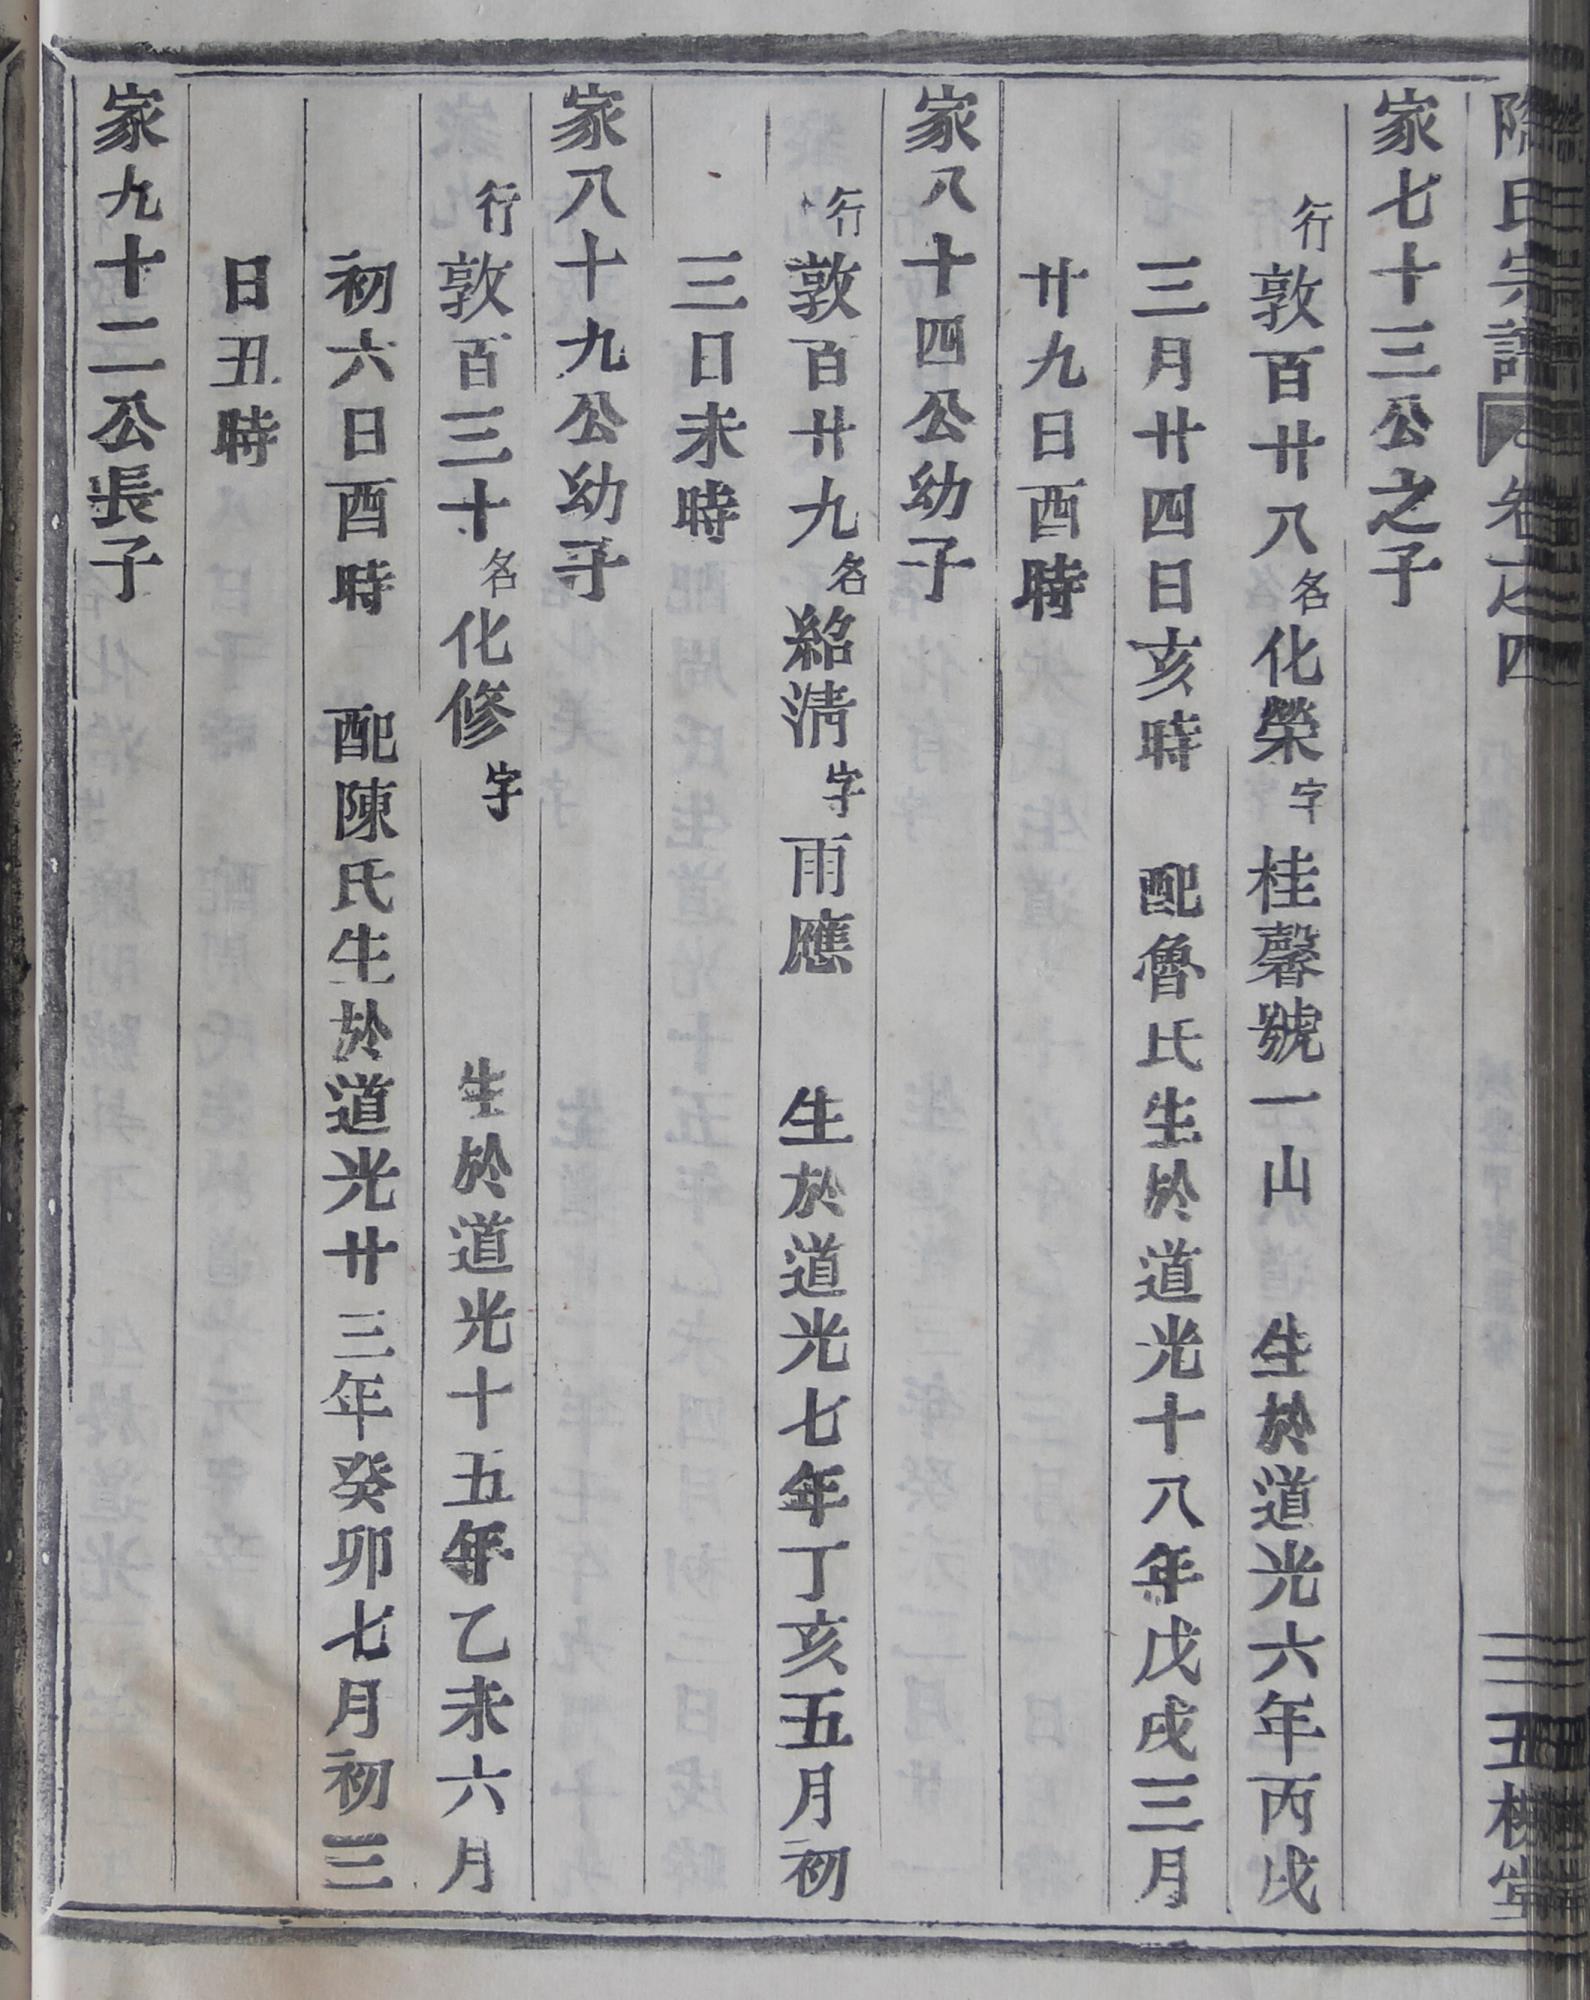 氏宗譜 卷之四 五桂堂
家七十三公之子
行敦百廿八名化榮字桂馨號一山 生於道光六年丙戌
三月廿四日亥時 配魯氏生於道光十八年戊戌三月
廿九日酉時
家八十四公幼子
行敦百廿九名紹淸字雨應 生於道光七年丁亥五月初
三日未時
家八十九公幼子
行敦百三十名化修字 生於道光十五年乙未六月
初六日酉時 配陳氏生於道光廿三年癸卯七月初三
日丑時
家九十二公長子